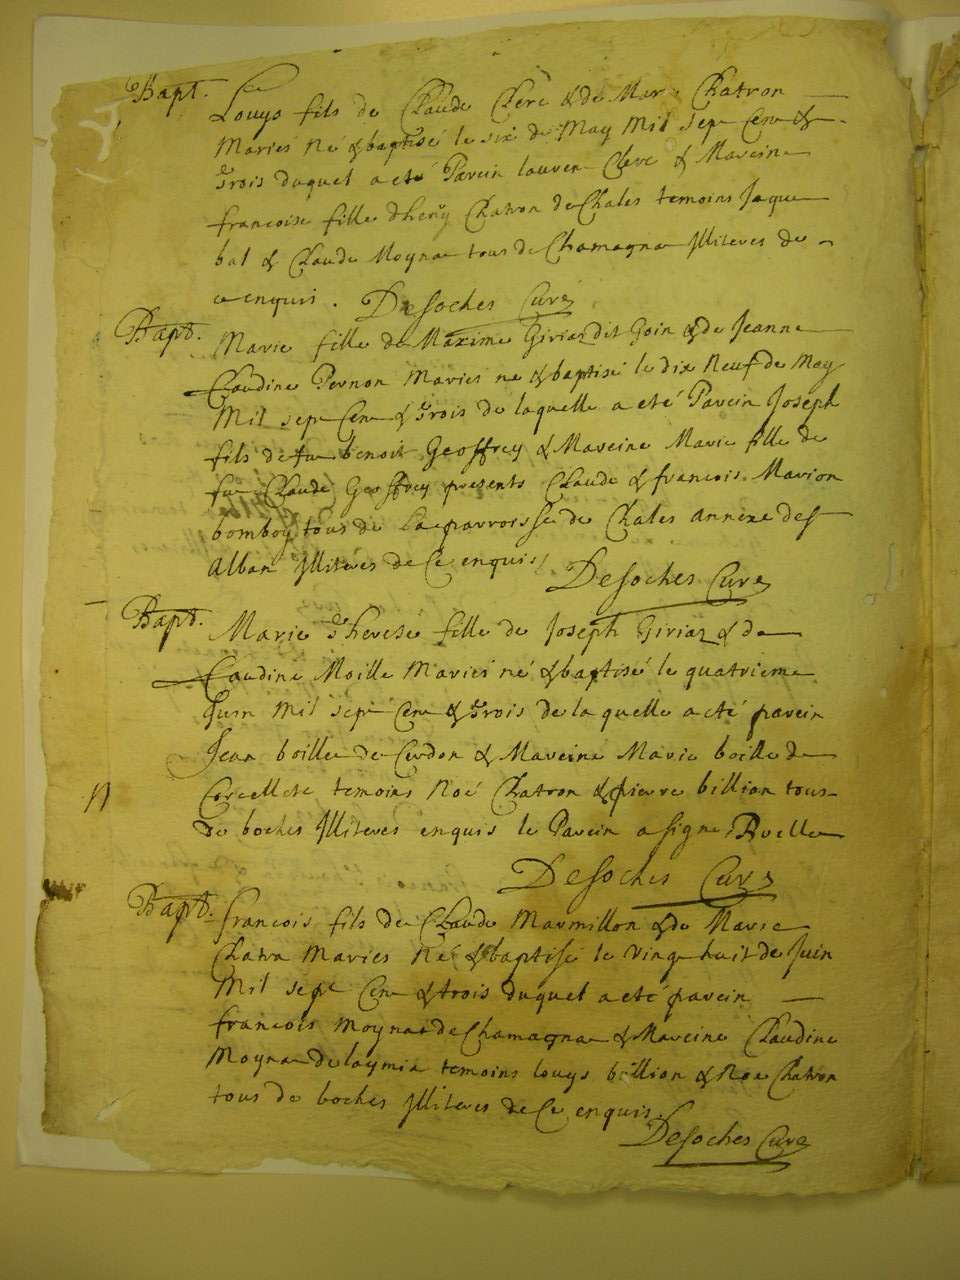 Bapt.
Louys fils de Claude Clerc & de Marie Chatron
Maries né & baptisé le six de May Mil sept Cent &
Trois duquel a eté Parein laurent Clerc & Mareine
francoise fille dhenry Chatron de Chales temoins Jaque
bal & Claude Moynat tous de Chamagnat Jlliteres de
ce enquis. Desoches Curé
Bapt.
Marie fille de Maxime Giriaz dit Goin & de Jeanne
Claudine Pernon Maries né & baptisé le dix Neuf de May
Mil sept Cent & Trois de laquelle a eté Parein Joseph
fils de fu benoit Geoffrey & Mareine Marie fille de
fu Claude Geoffrey presents Claude & francois Marion
bomboy tous de La parroisse de Chales annexe de St
Alban Jlliteres de Ce enquis
Desoches Curé
Bapt.
Marie Therese fille de Joseph Giriaz & de
Claudine Moille Mariés né & baptisé le quatrieme
Juin Mil sept Cent & Trois de la quelle a eté parein
Jean boille de Cerdon & Mareine Marie boille de
Corcellete temoins Noé Chatron & pierre billion tous
de boches Jlliteres enquis le Parein a signé Ruelle
Desoches Curé
Bapt.
francois fils de Claude Marmillon & de Marie
Chatron Maries Né & baptisé le Vingt huit de Juin
Mil sept Cent & trois duquel a eté parein
francois Moynat de Chamagnat & Mareine Claudine
Moynat de laymia temoins louys billion & Noe Chatron
tous de boches Jlliteres de Ce enquis.
Desoches Curé